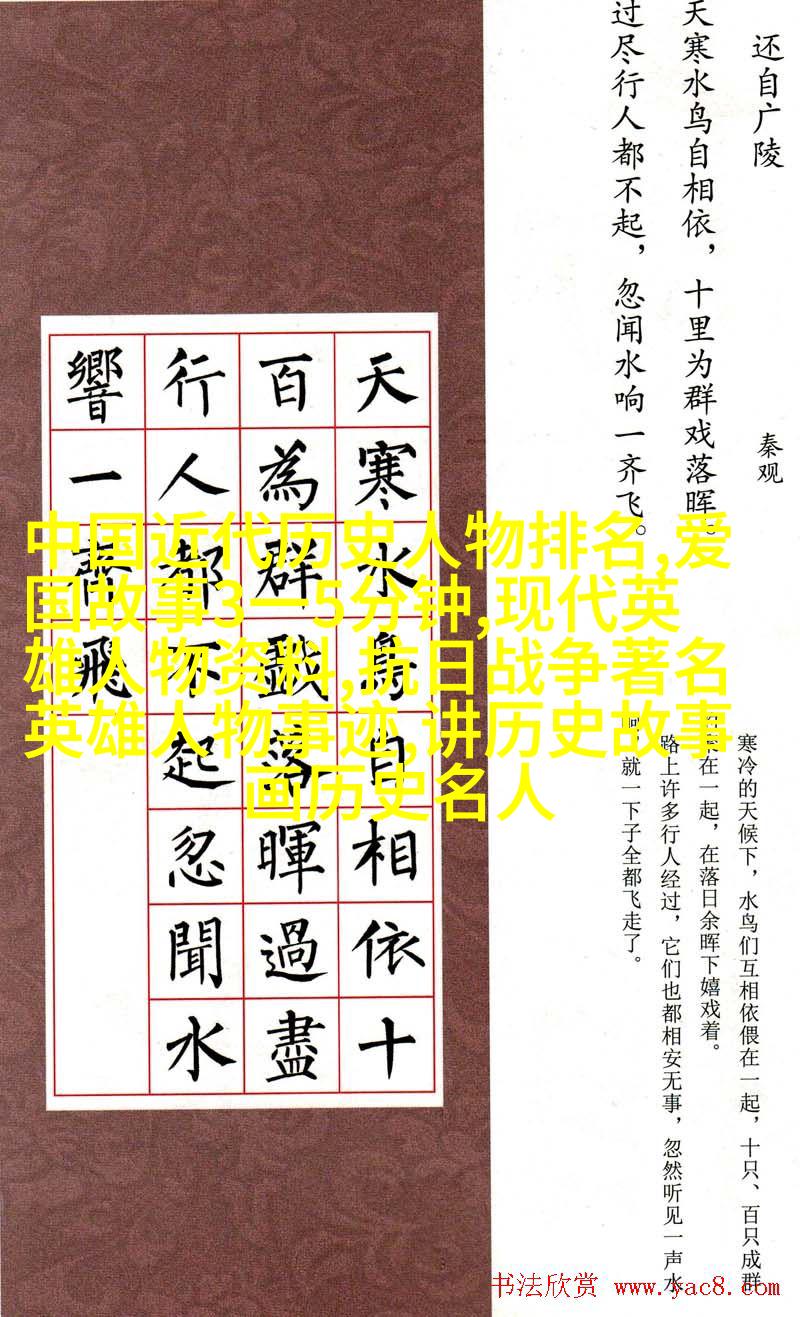 还自广陵
秦观
天寒水鸟自相依，十里为群戏落晖。
过尽行人都不起，忽闻水响一齐飞。
天寒水鳥自相依十
百為群戲落暉過盡
行人都不起忽聞水
響一齊飛
中国近代历史人物排名,爱
国故事3一5分钟,现代英
雄人物资料,抗日战争著名
英雄人物事迹,讲历史故事
画历史名人
寒冷的天候下，水鸟们互相依偎在一起，十只、百只成群
在一起，在落日余晖下嬉戏着。
路上许多行人经过，它们也都相安无事，忽然听见一声水
就一下子全都飞走了。
书法欣赏 www.yac8.com